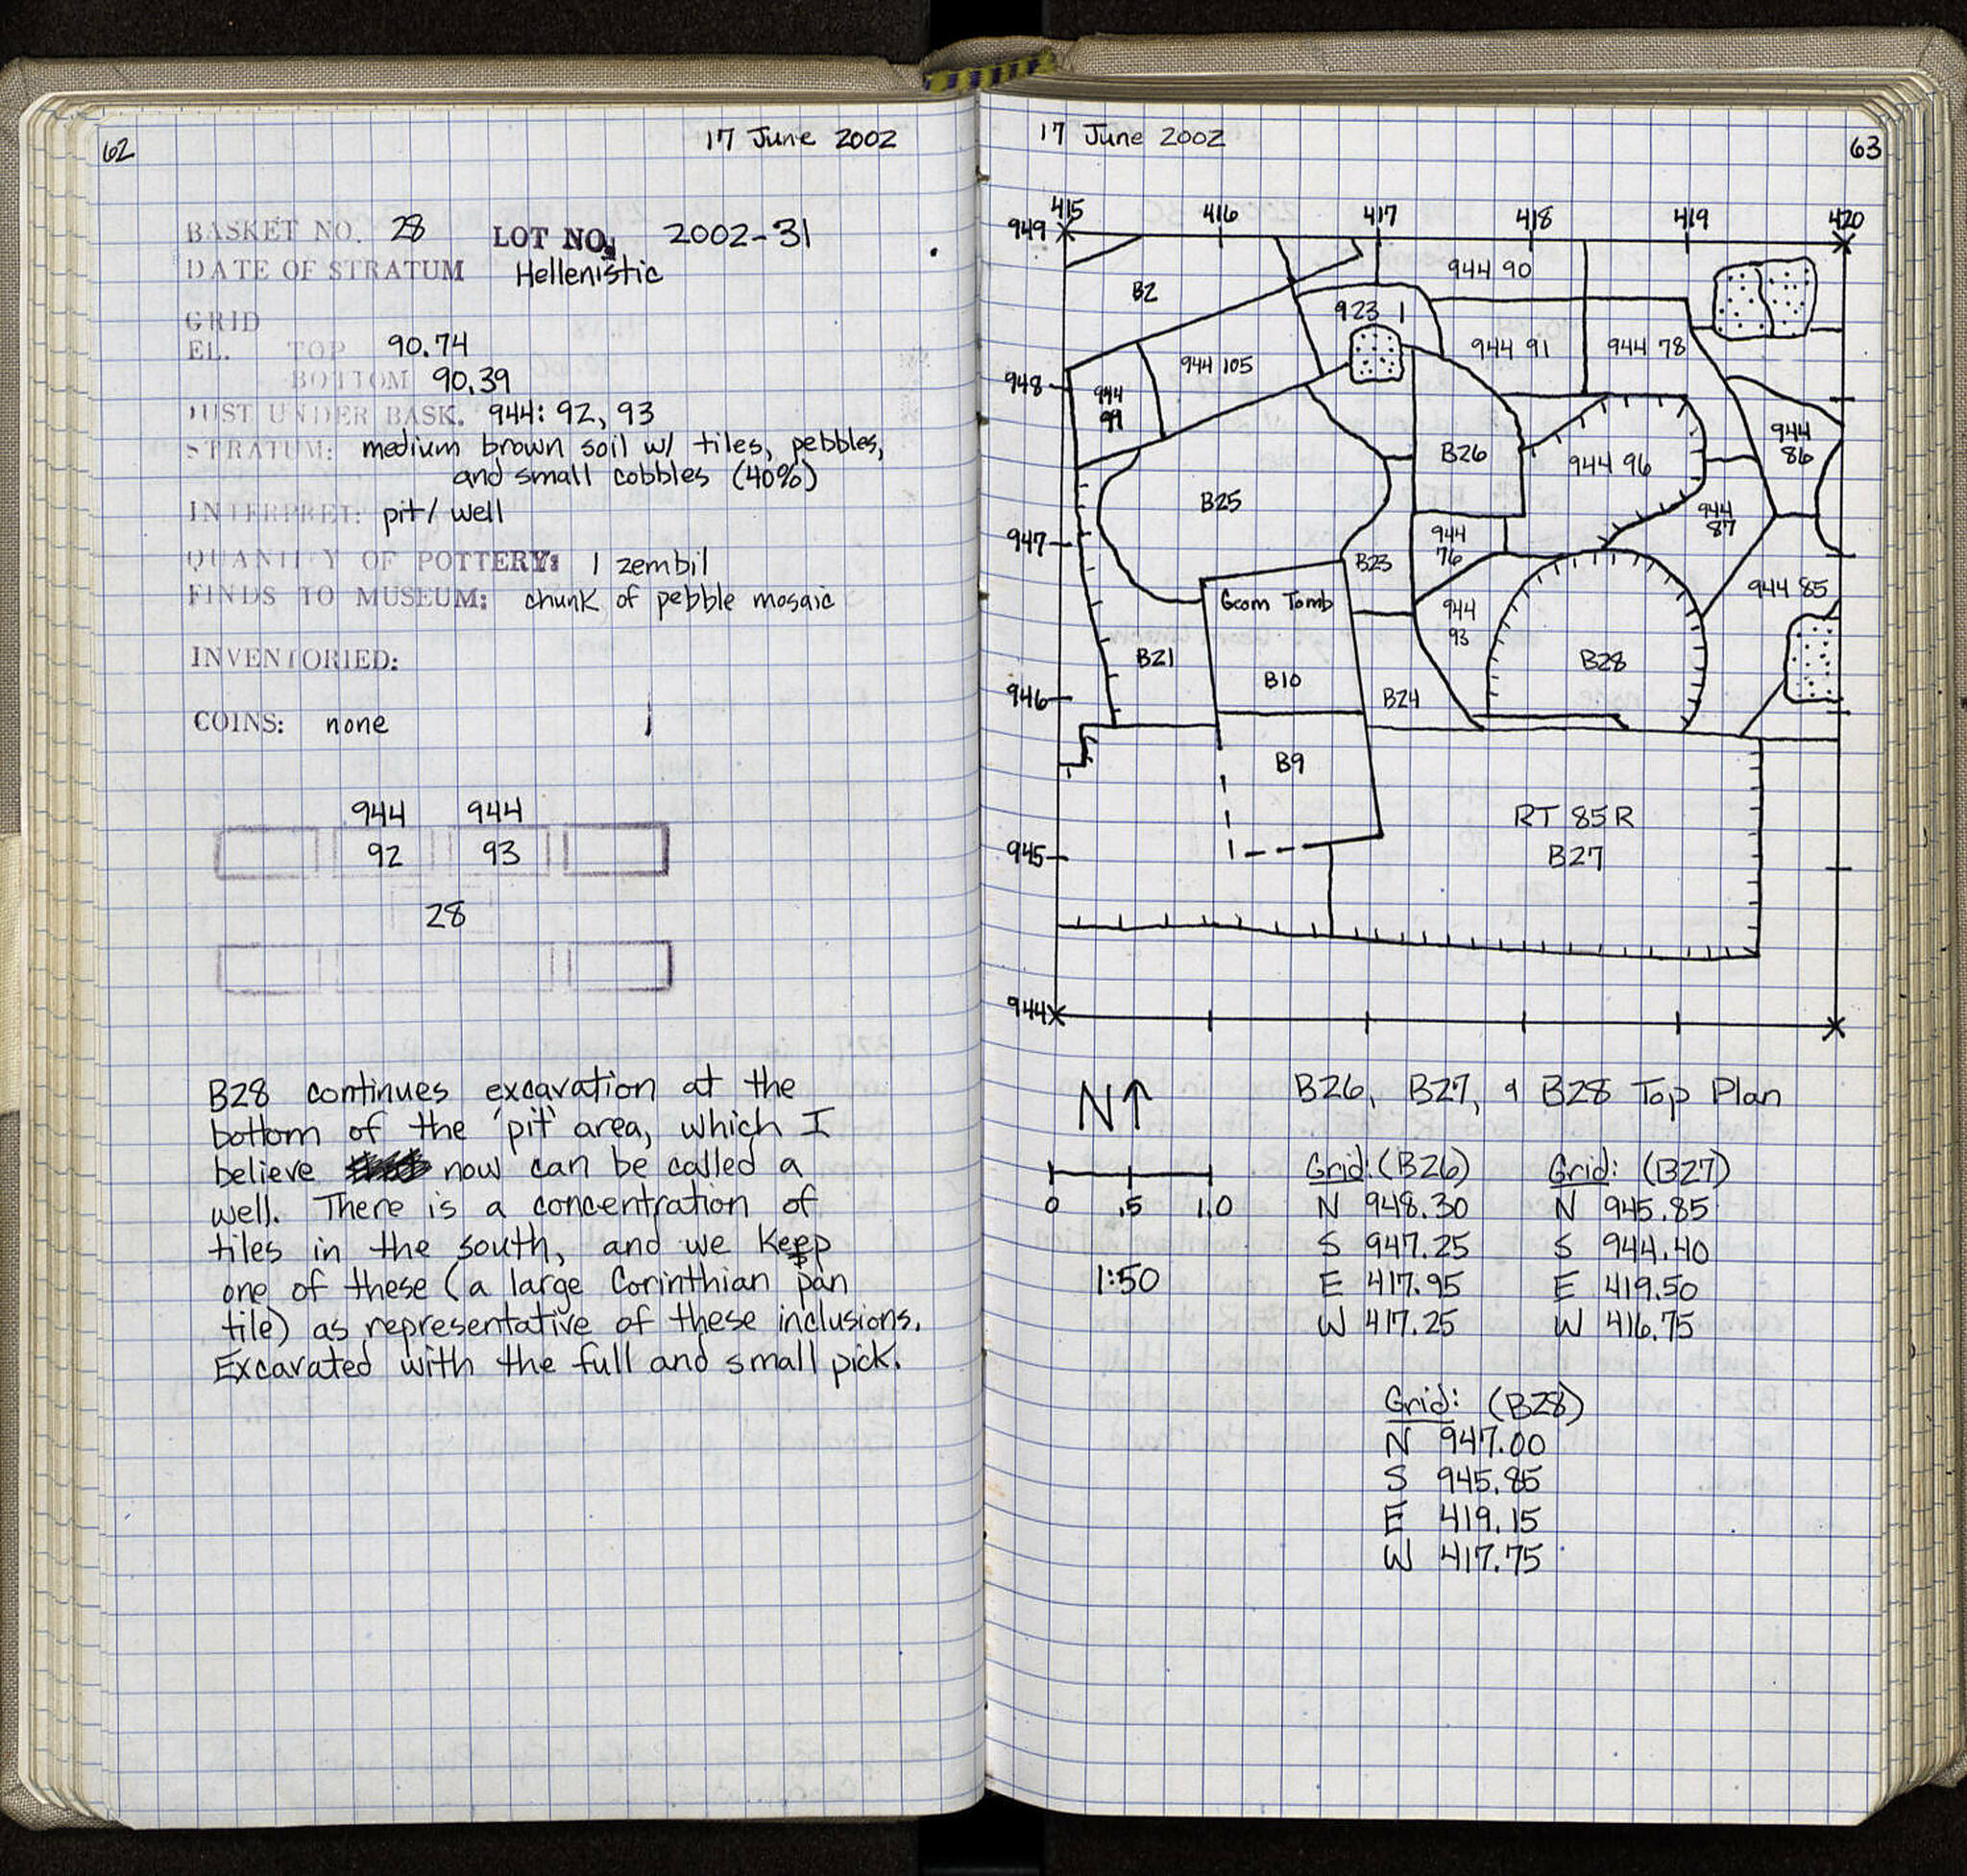 62
17 June 2002
BASKET NO. 28 LOT NO. 2002-31
DATE OF STRATUM Hellenistic
GRID
EL. TOP 90.74
BOTTOM 90.39
JUST UNDER BASK. 944: 92, 93
STRATUM: medium brown soil w/ tiles, pebbles,
and small cobbles (40%)
INTERPRET: pit/well
QUANTITY OF POTTERY: 1 zembil
FINDS TO MUSEUM: chunk of pebble mosaic
INVENTORIED:
COINS: none
944 944
92 93
28
B28 continues excavation at the
bottom of the 'pit' area, which I
believe now can be called a
well. There is a concentration of
tiles in the south, and we keep
one of these (a large Corinthian pan
tile) as representative of these inclusions.
Excavated with the full and small pick.
17 June 2002
63
415 416 417 418 419 420
949
944 90
B2
923 1
944 91
944 78
944 105
948
944
99
944
86
B26
944 96
B25
944
87
947
944
76
B23
944 85
Geom Tomb
944
93
B21
B28
B10
946
B24
B9
RT 85R
945
B27
944
N↑
B26, B27, & B28 Top Plan
0 .5 1.0
1:50
Grid: (B26) Grid: (B27)
N 948.30 N 945.85
S 947.25 S 944.40
E 417.95 E 419.50
W 417.25 W 416.75
Grid: (B28)
N 947.00
S 945.85
E 419.15
W 417.75